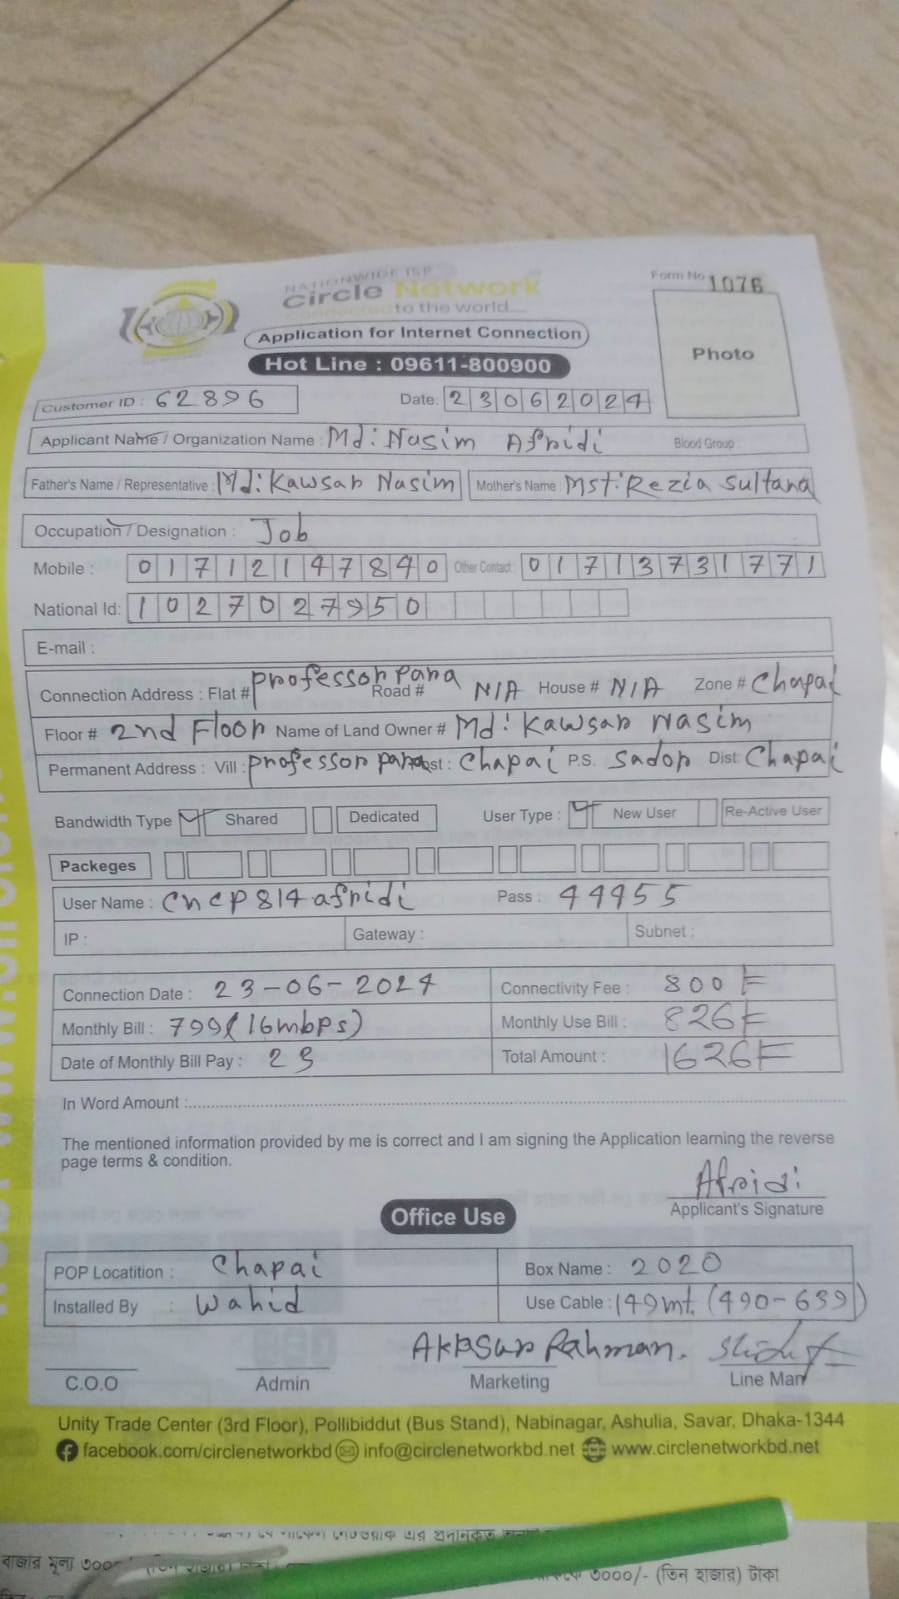 NATIONWIDE ISP
Circle Network
Connected to the world....
Form No 1076
Application for Internet Connection
Hot Line : 09611-800900
Photo
Customer ID : 62896
Date: 23062024
Applicant Name / Organization Name : Md: Nasim Afridi Blood Group :
Father's Name / Representative : Md: Kawsar Nasim Mother's Name Mst: Rezia Sultana
Occupation / Designation : Job
Mobile : 01712147840 Other Contact : 01713731771
National Id: 1027027950
E-mail :
Connection Address : Flat # professor para Road # N/A House # N/A Zone # Chapai
Floor # 2nd Floor Name of Land Owner # Md: Kawsar Nasim
Permanent Address : Vill : professor para Post : Chapai P.S. Sador Dist: Chapai
Bandwidth Type Shared Dedicated User Type : New User Re-Active User
Packeges
User Name : cncp814afridi Pass : 44955
IP : Gateway : Subnet :
Connection Date : 23-06-2024 Connectivity Fee : 800
Monthly Bill : 799 (16mbps) Monthly Use Bill : 826
Date of Monthly Bill Pay : 23 Total Amount : 1626
In Word Amount :
The mentioned information provided by me is correct and I am signing the Application learning the reverse
page terms & condition.
Afridi
Applicant's Signature
Office Use
POP Locatition : Chapai Box Name : 2020
Installed By : Wahid Use Cable : 149mt. (490-639)
Rahman.
C.O.O Admin Marketing Line Man
Unity Trade Center (3rd Floor), Pollibiddut (Bus Stand), Nabinagar, Ashulia, Savar, Dhaka-1344
facebook.com/circlenetworkbd info@circlenetworkbd.net www.circlenetworkbd.net
বাজার মূল্য ৩০০০/- (তিন হাজার) টাকা